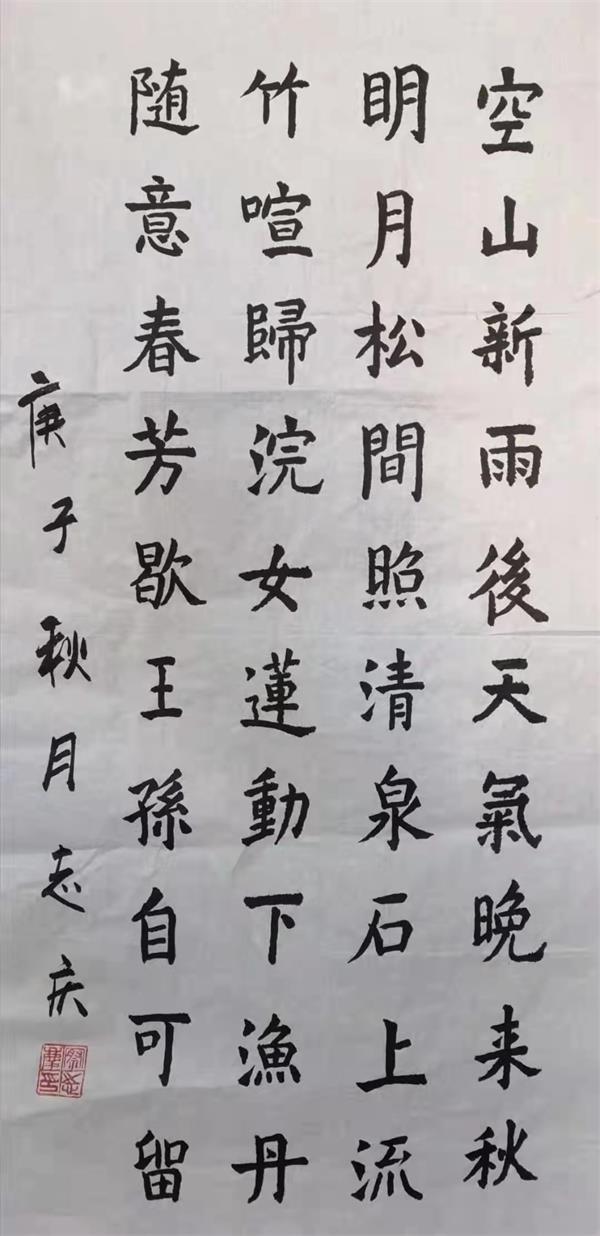 空山新雨後天氣晚来秋
明月松間照清泉石上流
竹喧歸浣女蓮動下漁丹
随意春芳歇王孫自可留
庚子秋月志庆